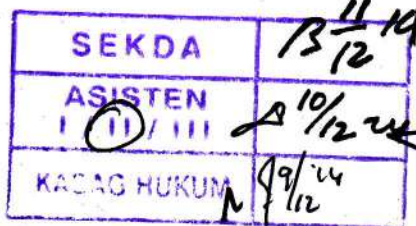 SEKDA 11/12
ASISTEN
I / II / III 10/12
KABAG HUKUM 9/12